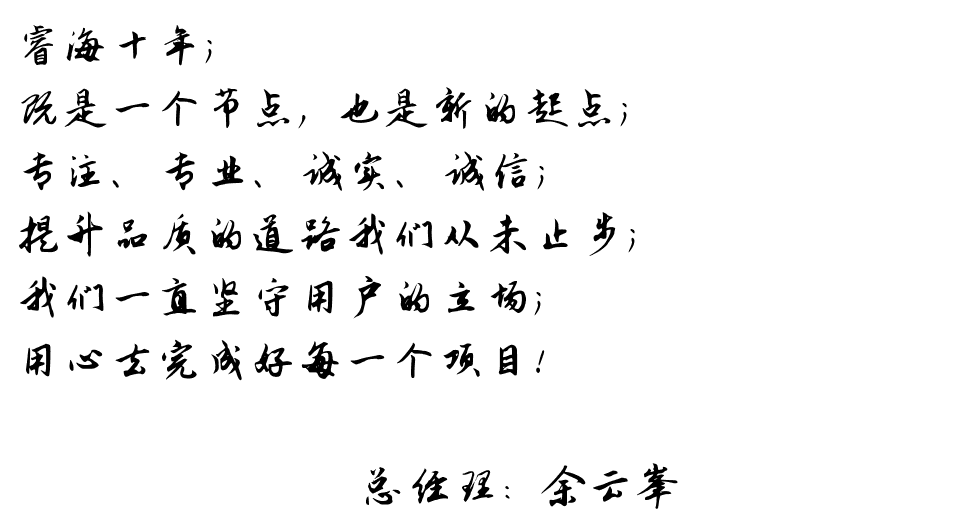 睿海十年；
既是一个节点，也是新的起点；
专注、专业、诚实、诚信；
提升品质的道路我们从未止步；
我们一直坚守用户的立场；
用心去完成好每一个项目！
总经理：余云峯